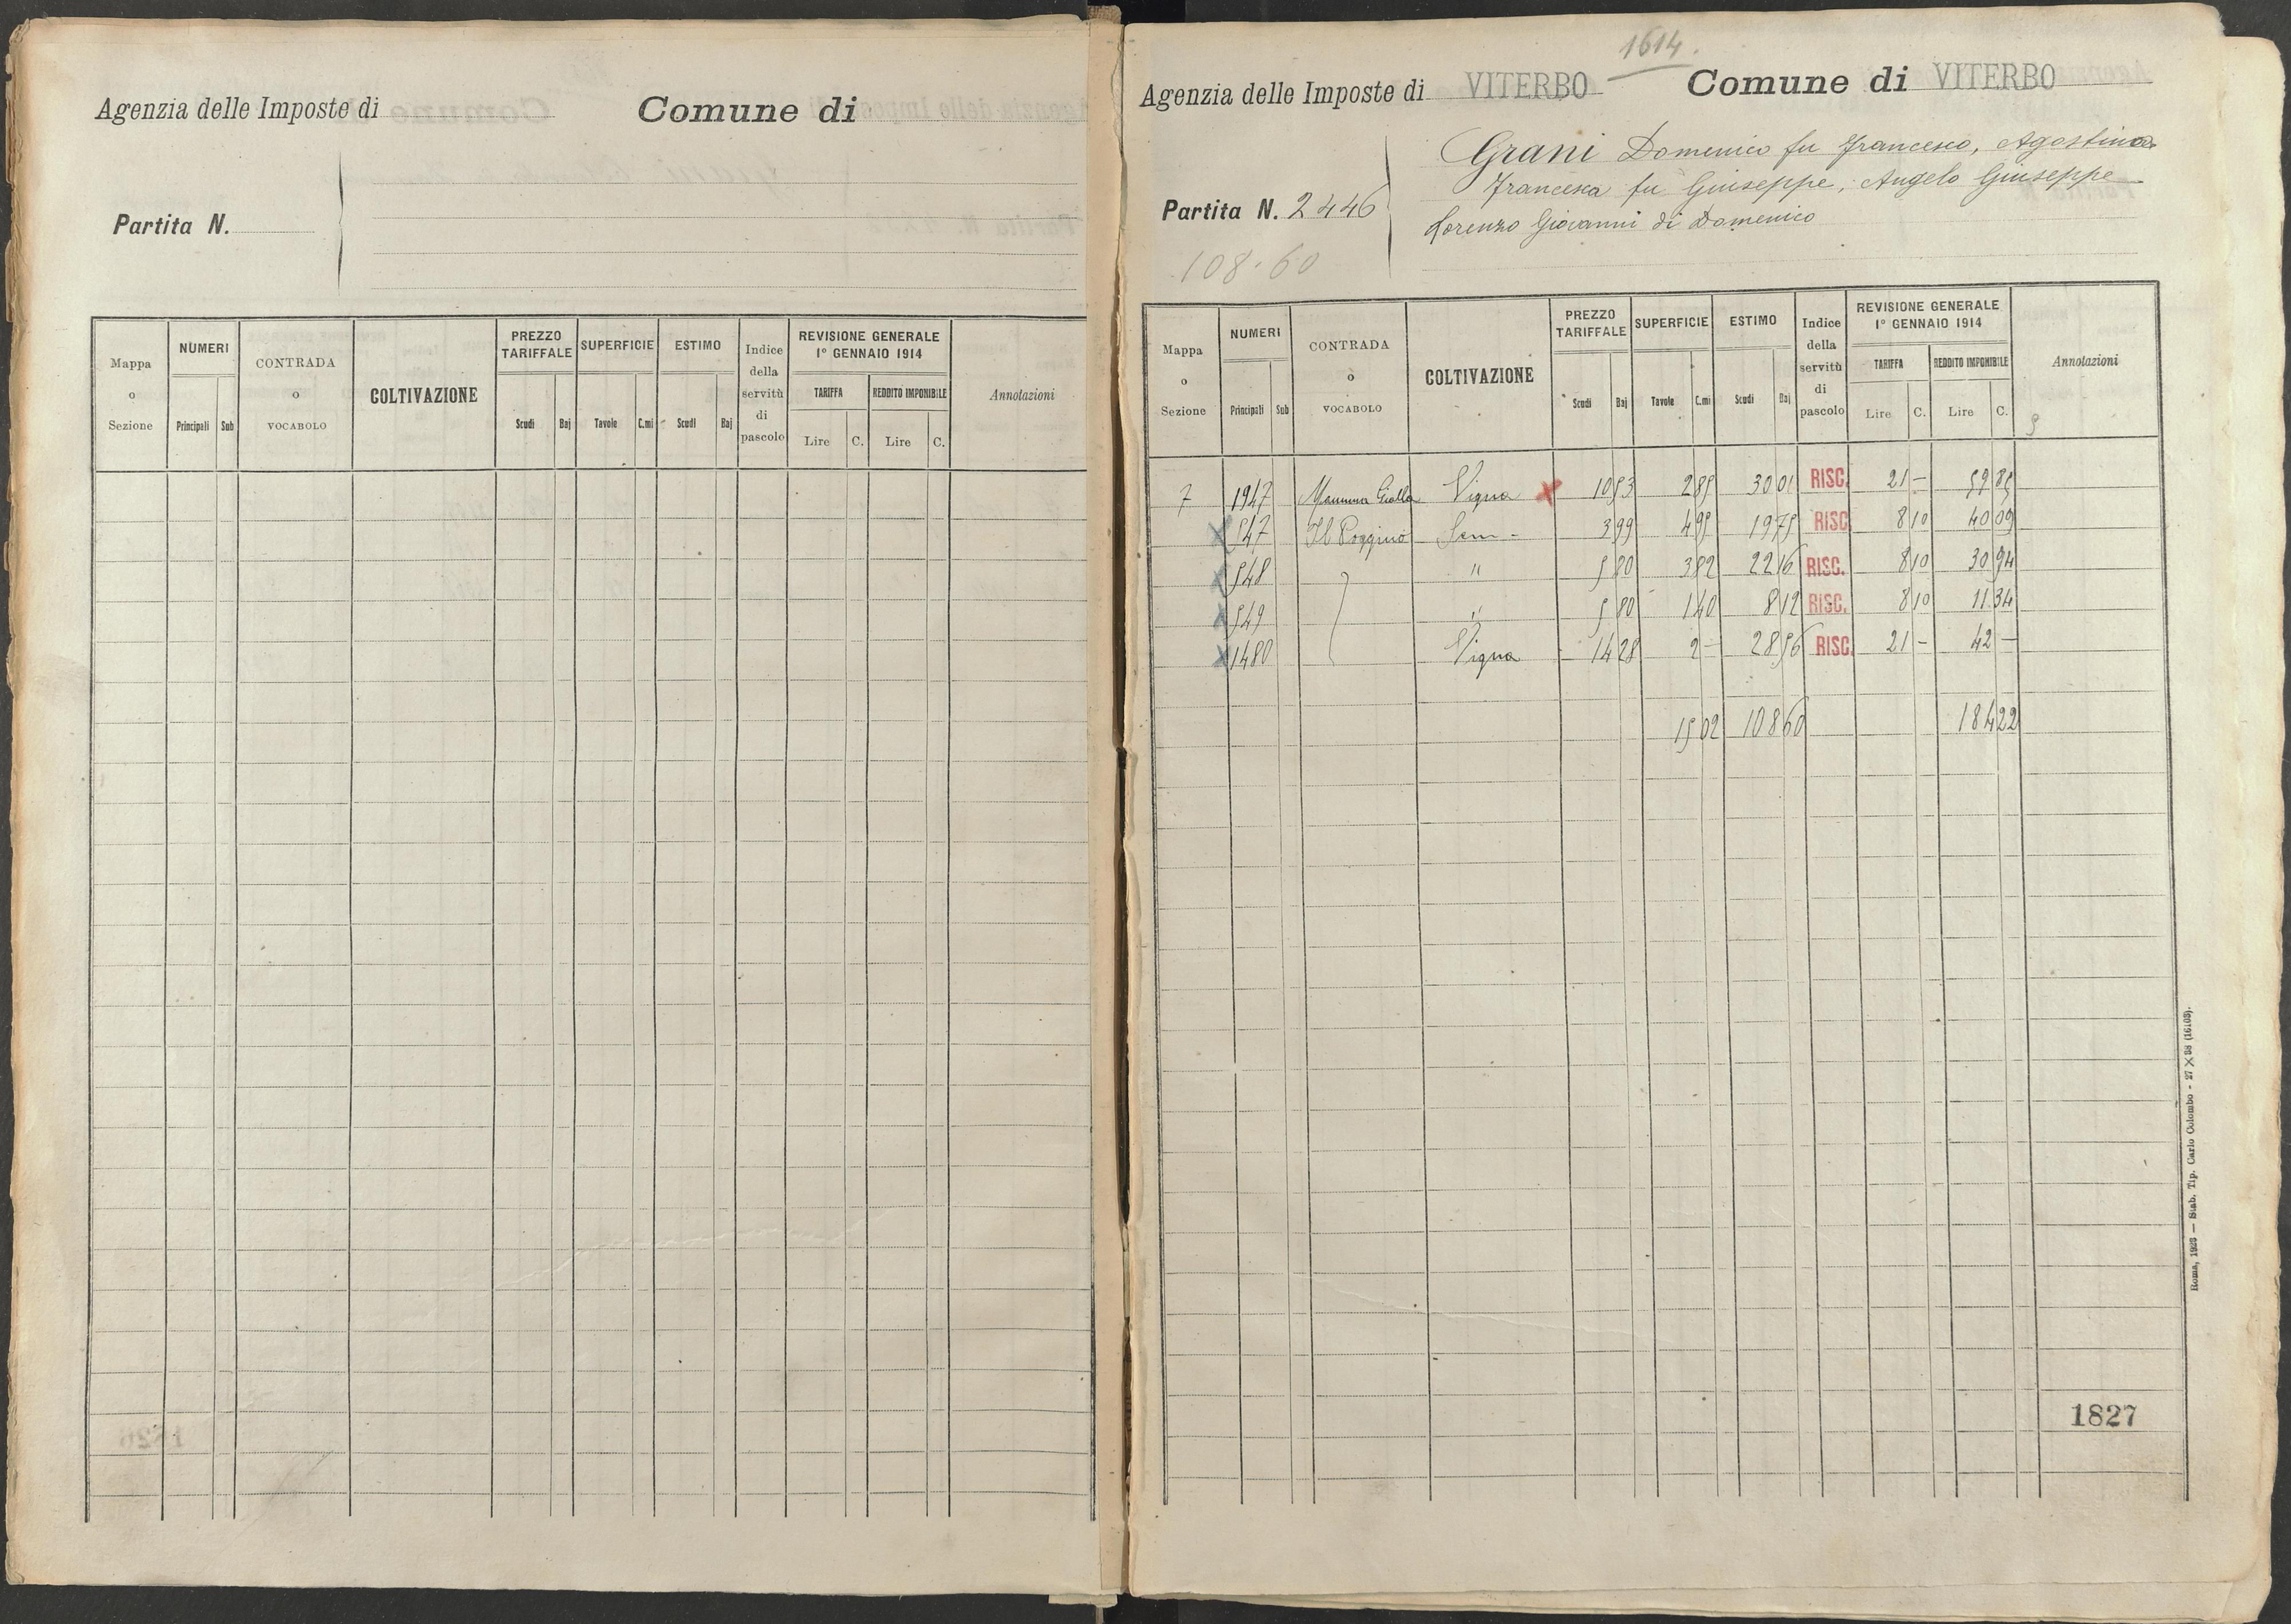 Agenzia delle Imposte di
Comune di
Partita N.
Mappa o Sezione
NUMERI
Principali Sub
CONTRADA o VOCABOLO
COLTIVAZIONE
PREZZO TARIFFALE
Scudi Baj
SUPERFICIE
Tavole C.mi
ESTIMO
Scudi Baj
Indice della servitù di pascolo
REVISIONE GENERALE
1° GENNAIO 1914
TARIFFA
Lire C.
REDDITO IMPONIBILE
Lire C.
Annotazioni
1614.
Agenzia delle Imposte di VITERBO Comune di VITERBO
Grani Domenico fu Francesco, Agostino
Francesca fu Giuseppe, Angelo Giuseppe
Partita N. 2446
Lorenzo Giovanni di Domenico
108.60
Mappa o Sezione
NUMERI
Principali Sub
CONTRADA o VOCABOLO
COLTIVAZIONE
PREZZO TARIFFALE
Scudi Baj
SUPERFICIE
Tavole C.mi
ESTIMO
Scudi Baj
Indice della servitù di pascolo
REVISIONE GENERALE
1° GENNAIO 1914
TARIFFA
Lire C.
REDDITO IMPONIBILE
Lire C.
Annotazioni
7 1947 Mamma Gialla Vigna X 10 53 2 85 30 01 RISC. 21 – 59 85
X 547 Il Poggino Sem - 3 99 4 95 19 75 RISC. 8 10 40 09
X 548 " 5 80 3 82 22 16 RISC. 8 10 30 94
X 549 " 5 80 1 40 8 12 RISC. 8 10 11 34
X 1480 Vigna 14 28 2 – 28 56 RISC. 21 – 42 –
15 02 108 60 184 22
1827
Roma, 1923 — Stab. Tip. Carlo Colombo - 27 X 38 (16103).